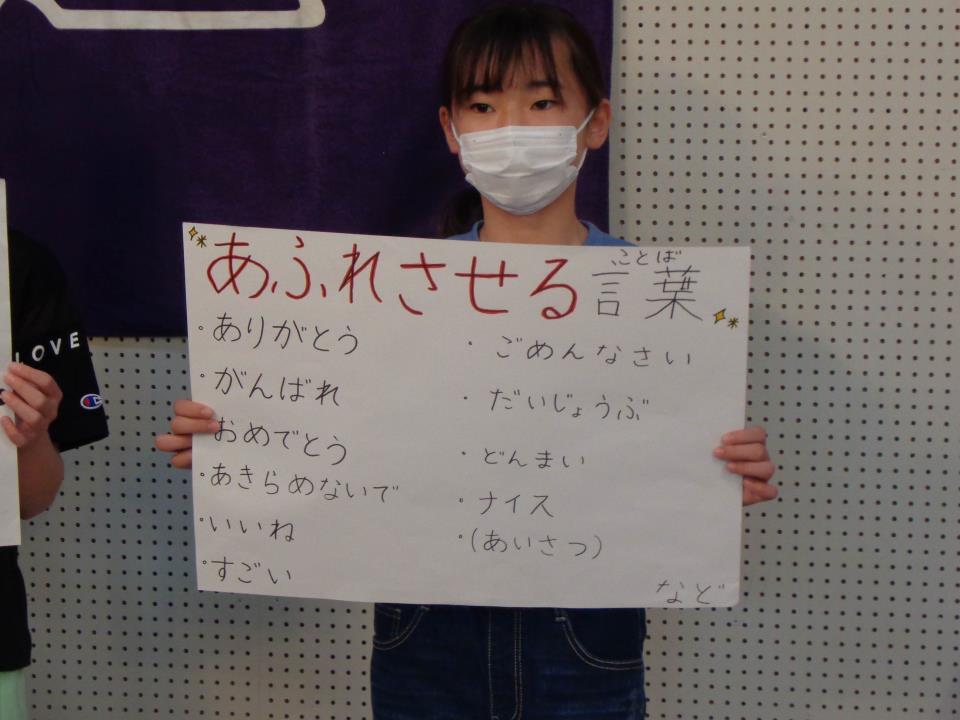 あふれさせる言葉
ことば
・ありがとう
・がんばれ
・おめでとう
・あきらめないで
・いいね
・すごい
・ごめんなさい
・だいじょうぶ
・どんまい
・ナイス
・(あいさつ)
など
LOVE